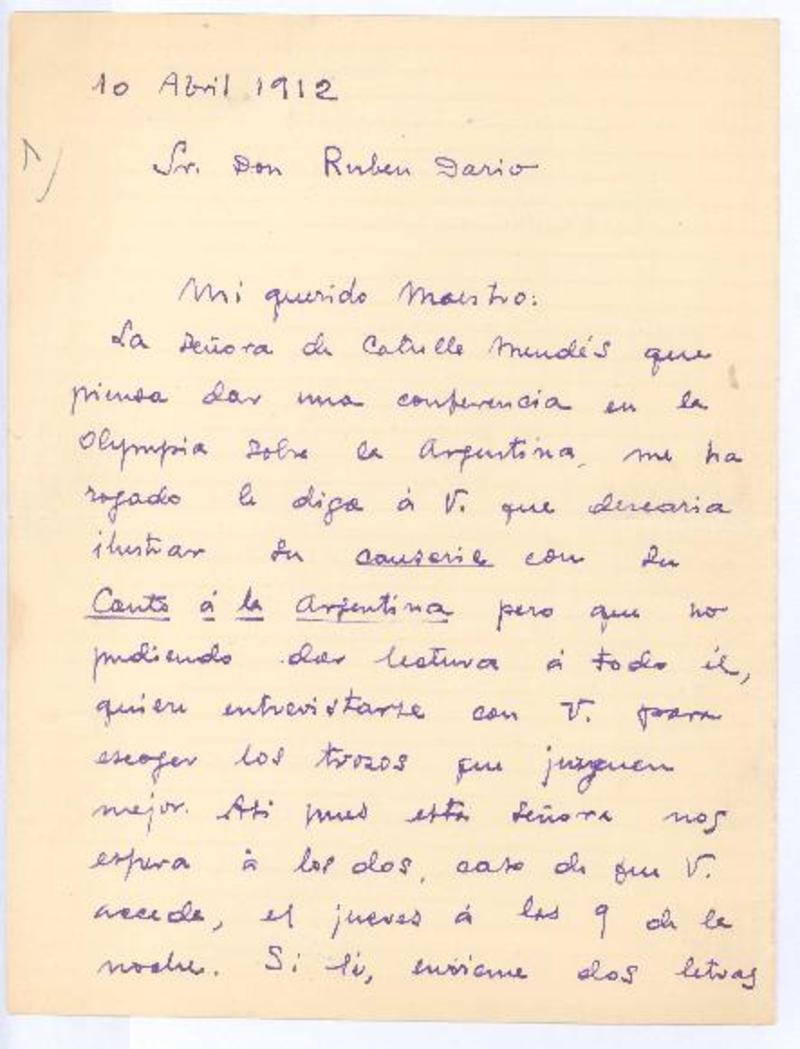 10 Abril 1912
Sr. Don Ruben Dario
Mi querido Maestro:
La señora de Catulle Mendés que
piensa dar una conferencia en la
Olympia sobre la Argentina, me ha
rogado le diga á V. que desearia
ilustrar su causerie con su
Canto á la Argentina pero que no
pudiendo dar lectura á todo él,
quiere entrevistarse con V. para
escoger los trozos que juzguen
mejor. Asi pues esta señora nos
espera á los dos, caso de que V.
accede, el jueves á las 9 de la
noche. Si si, envieme dos letras